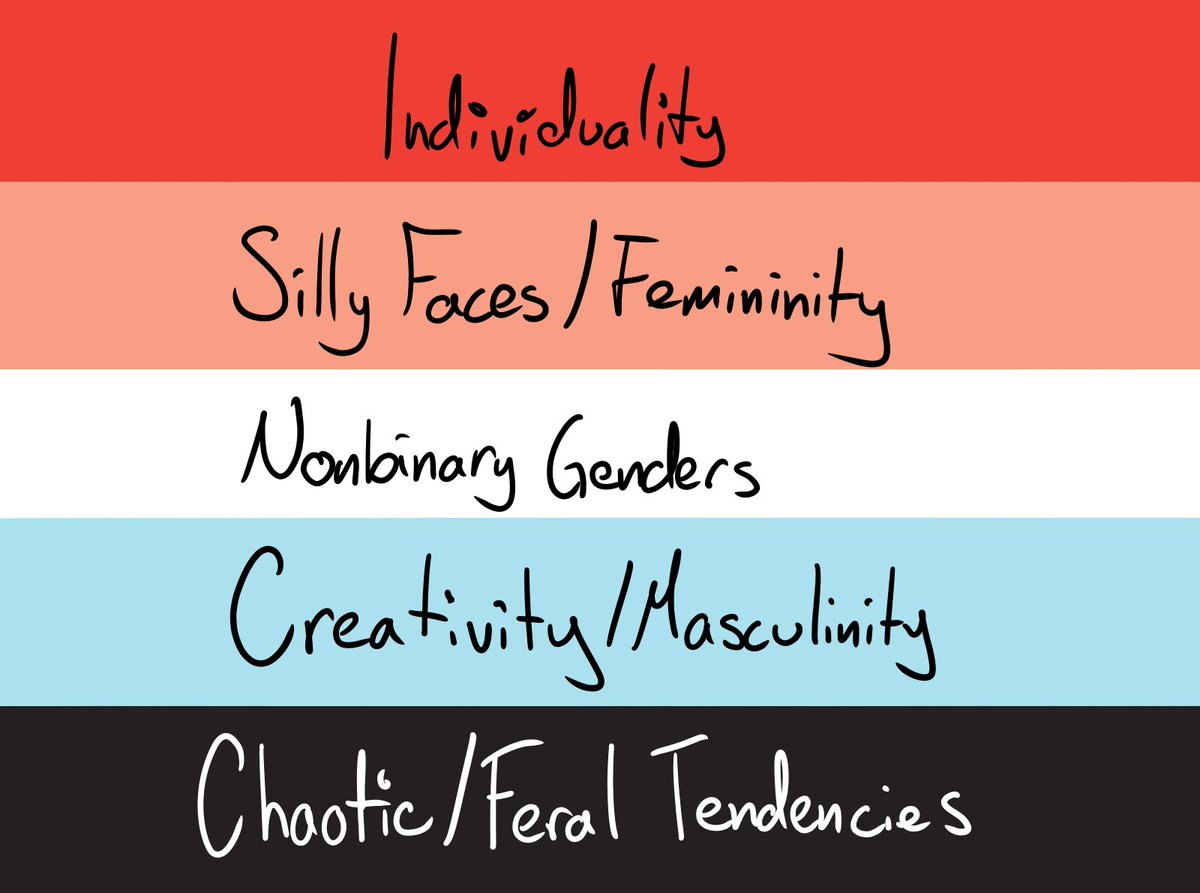 Individuality
Silly Faces/Femininity
Nonbinary Genders
Creativity/Masculinity
Chaotic/Feral Tendencies